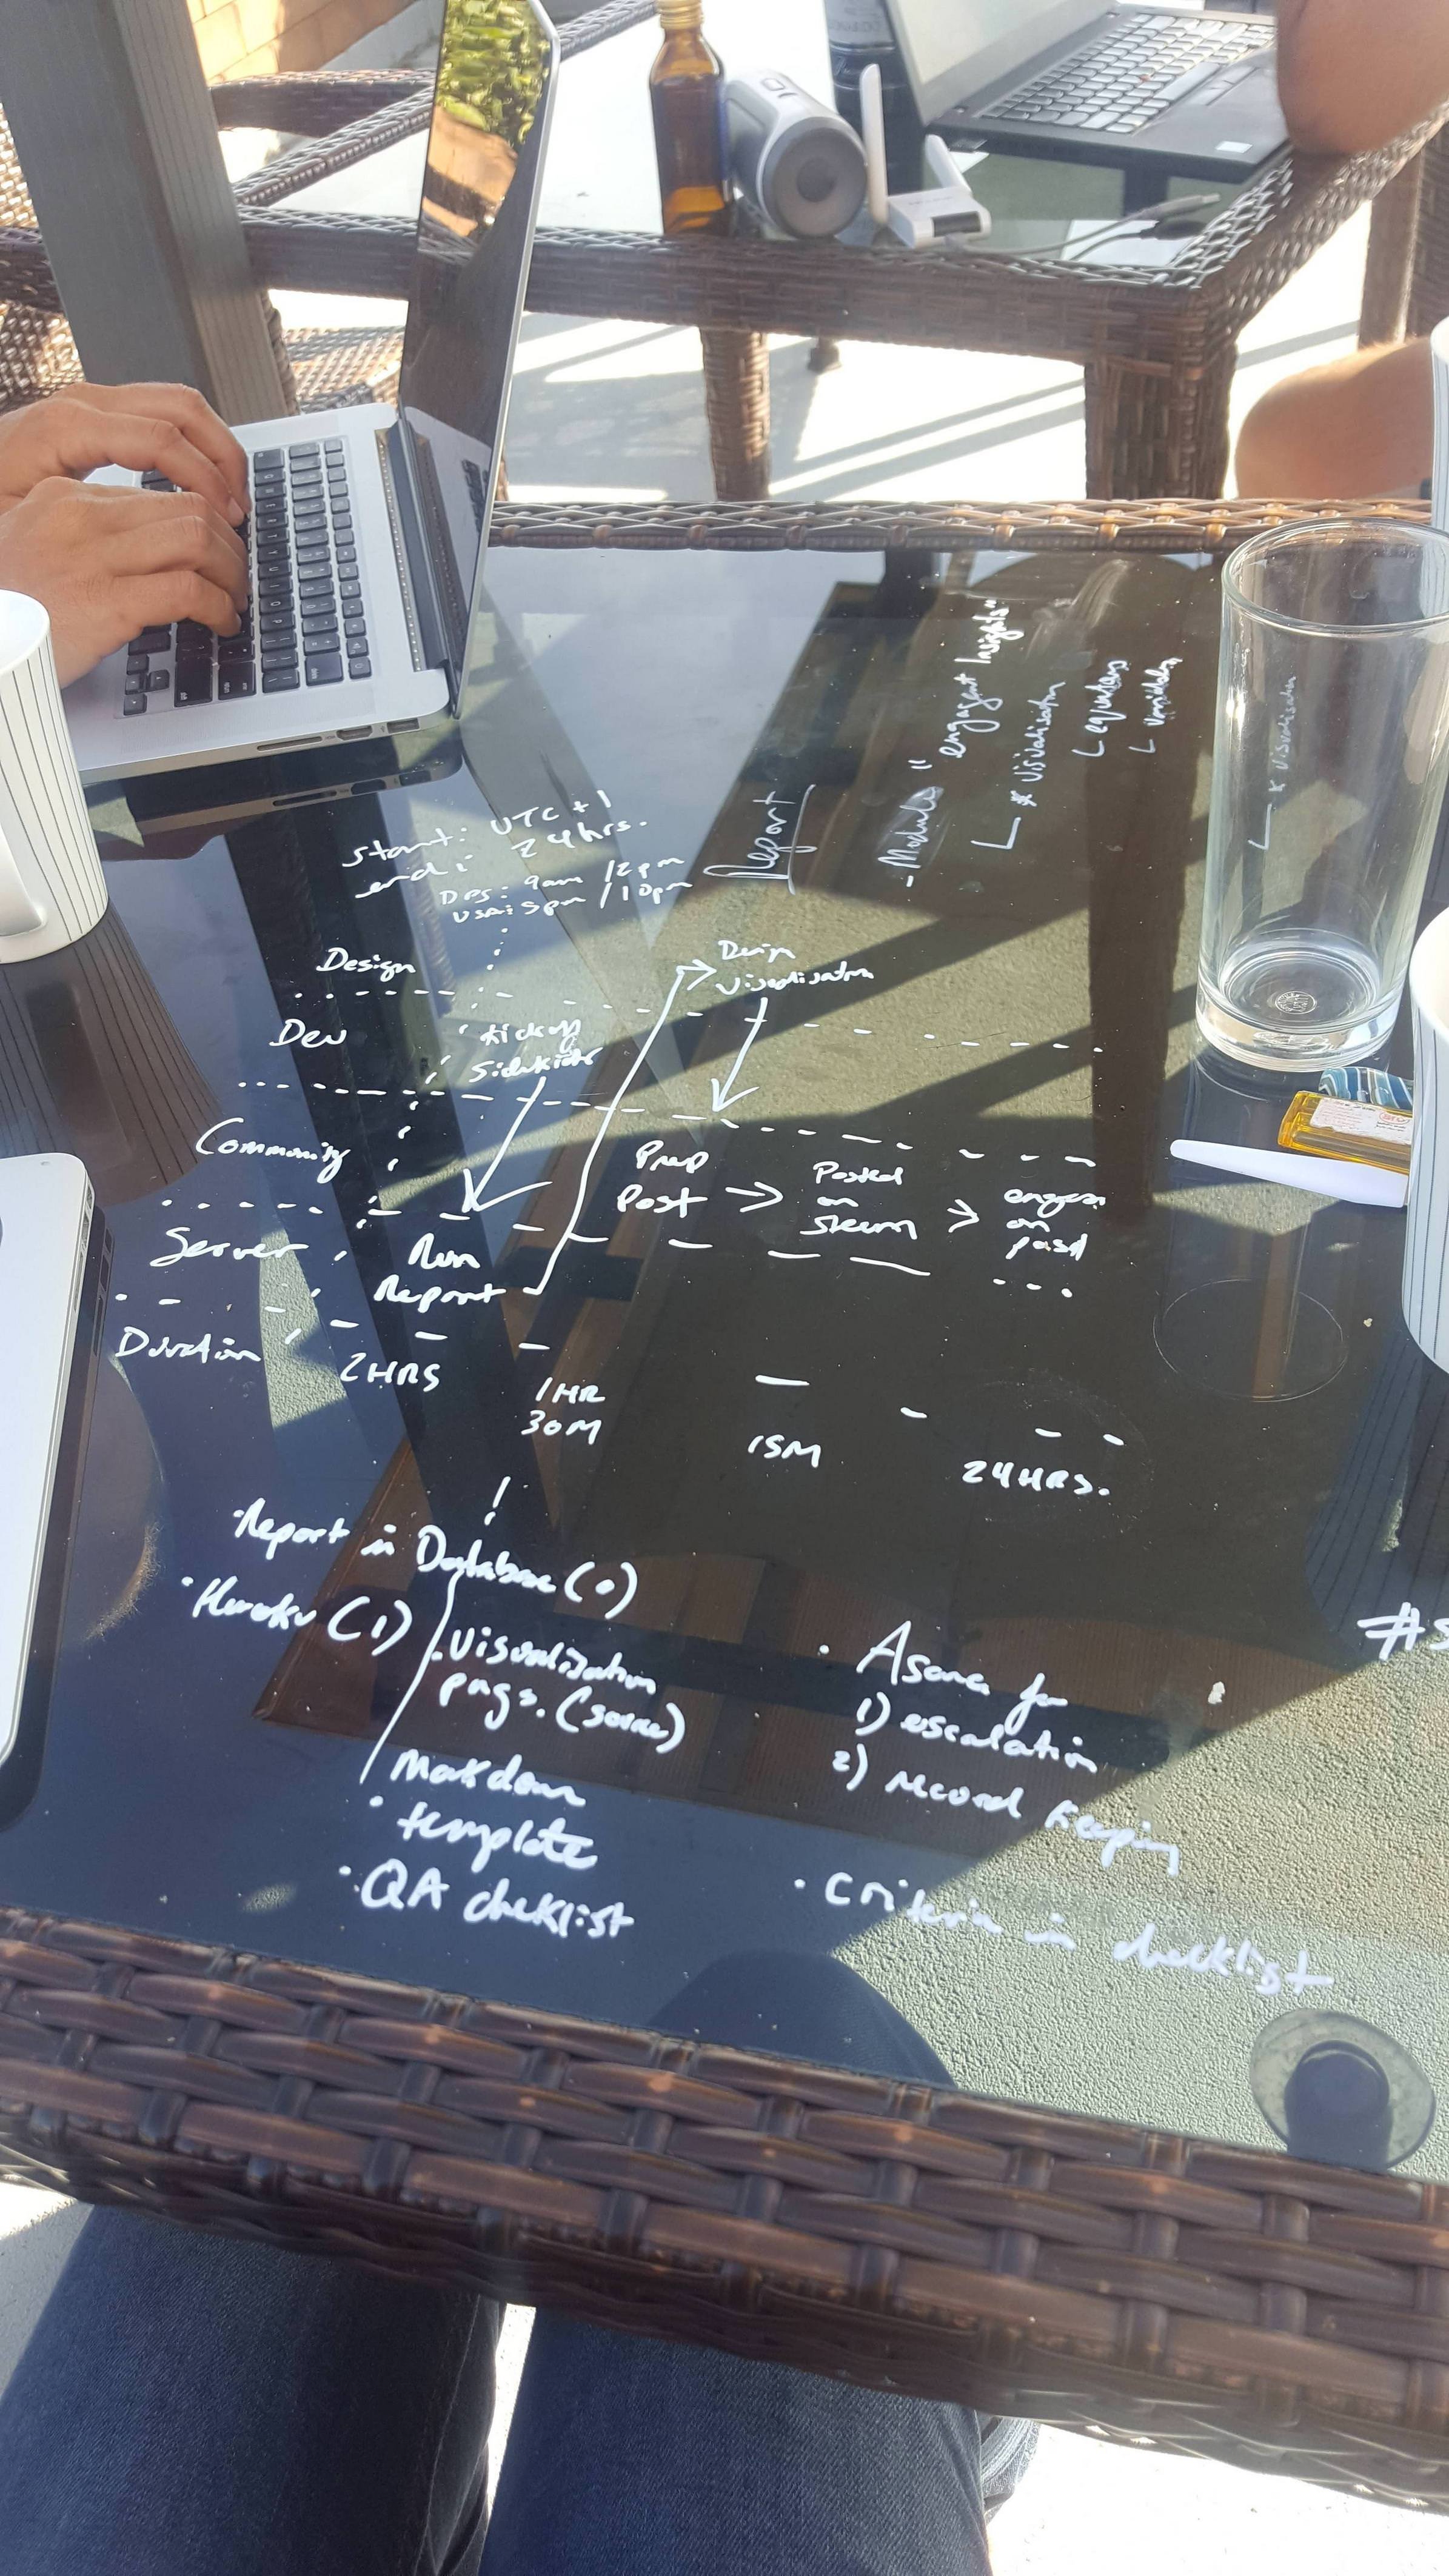 start: UTC + 1
end: 24hrs.
DPS: 9am / 12pm
USA: 5pm / 10pm
Report
- Module "engagement Insights"
* visualisation
Design
Design
visualisation
Dev
kickoff
Sidekick
Community
Prep
Post → Posted
on
Steem > engage
on
post
Server
Run
Report
Duration
2HRS
1HR
30M
15M
24HRS.
• Report in Database (0)
• Heroku (1)
• Visualisation
pags. (source)
Markdown
• template
• QA checklist
• Asana for
1) escalation
2) record keeping
• Criteria in checklist